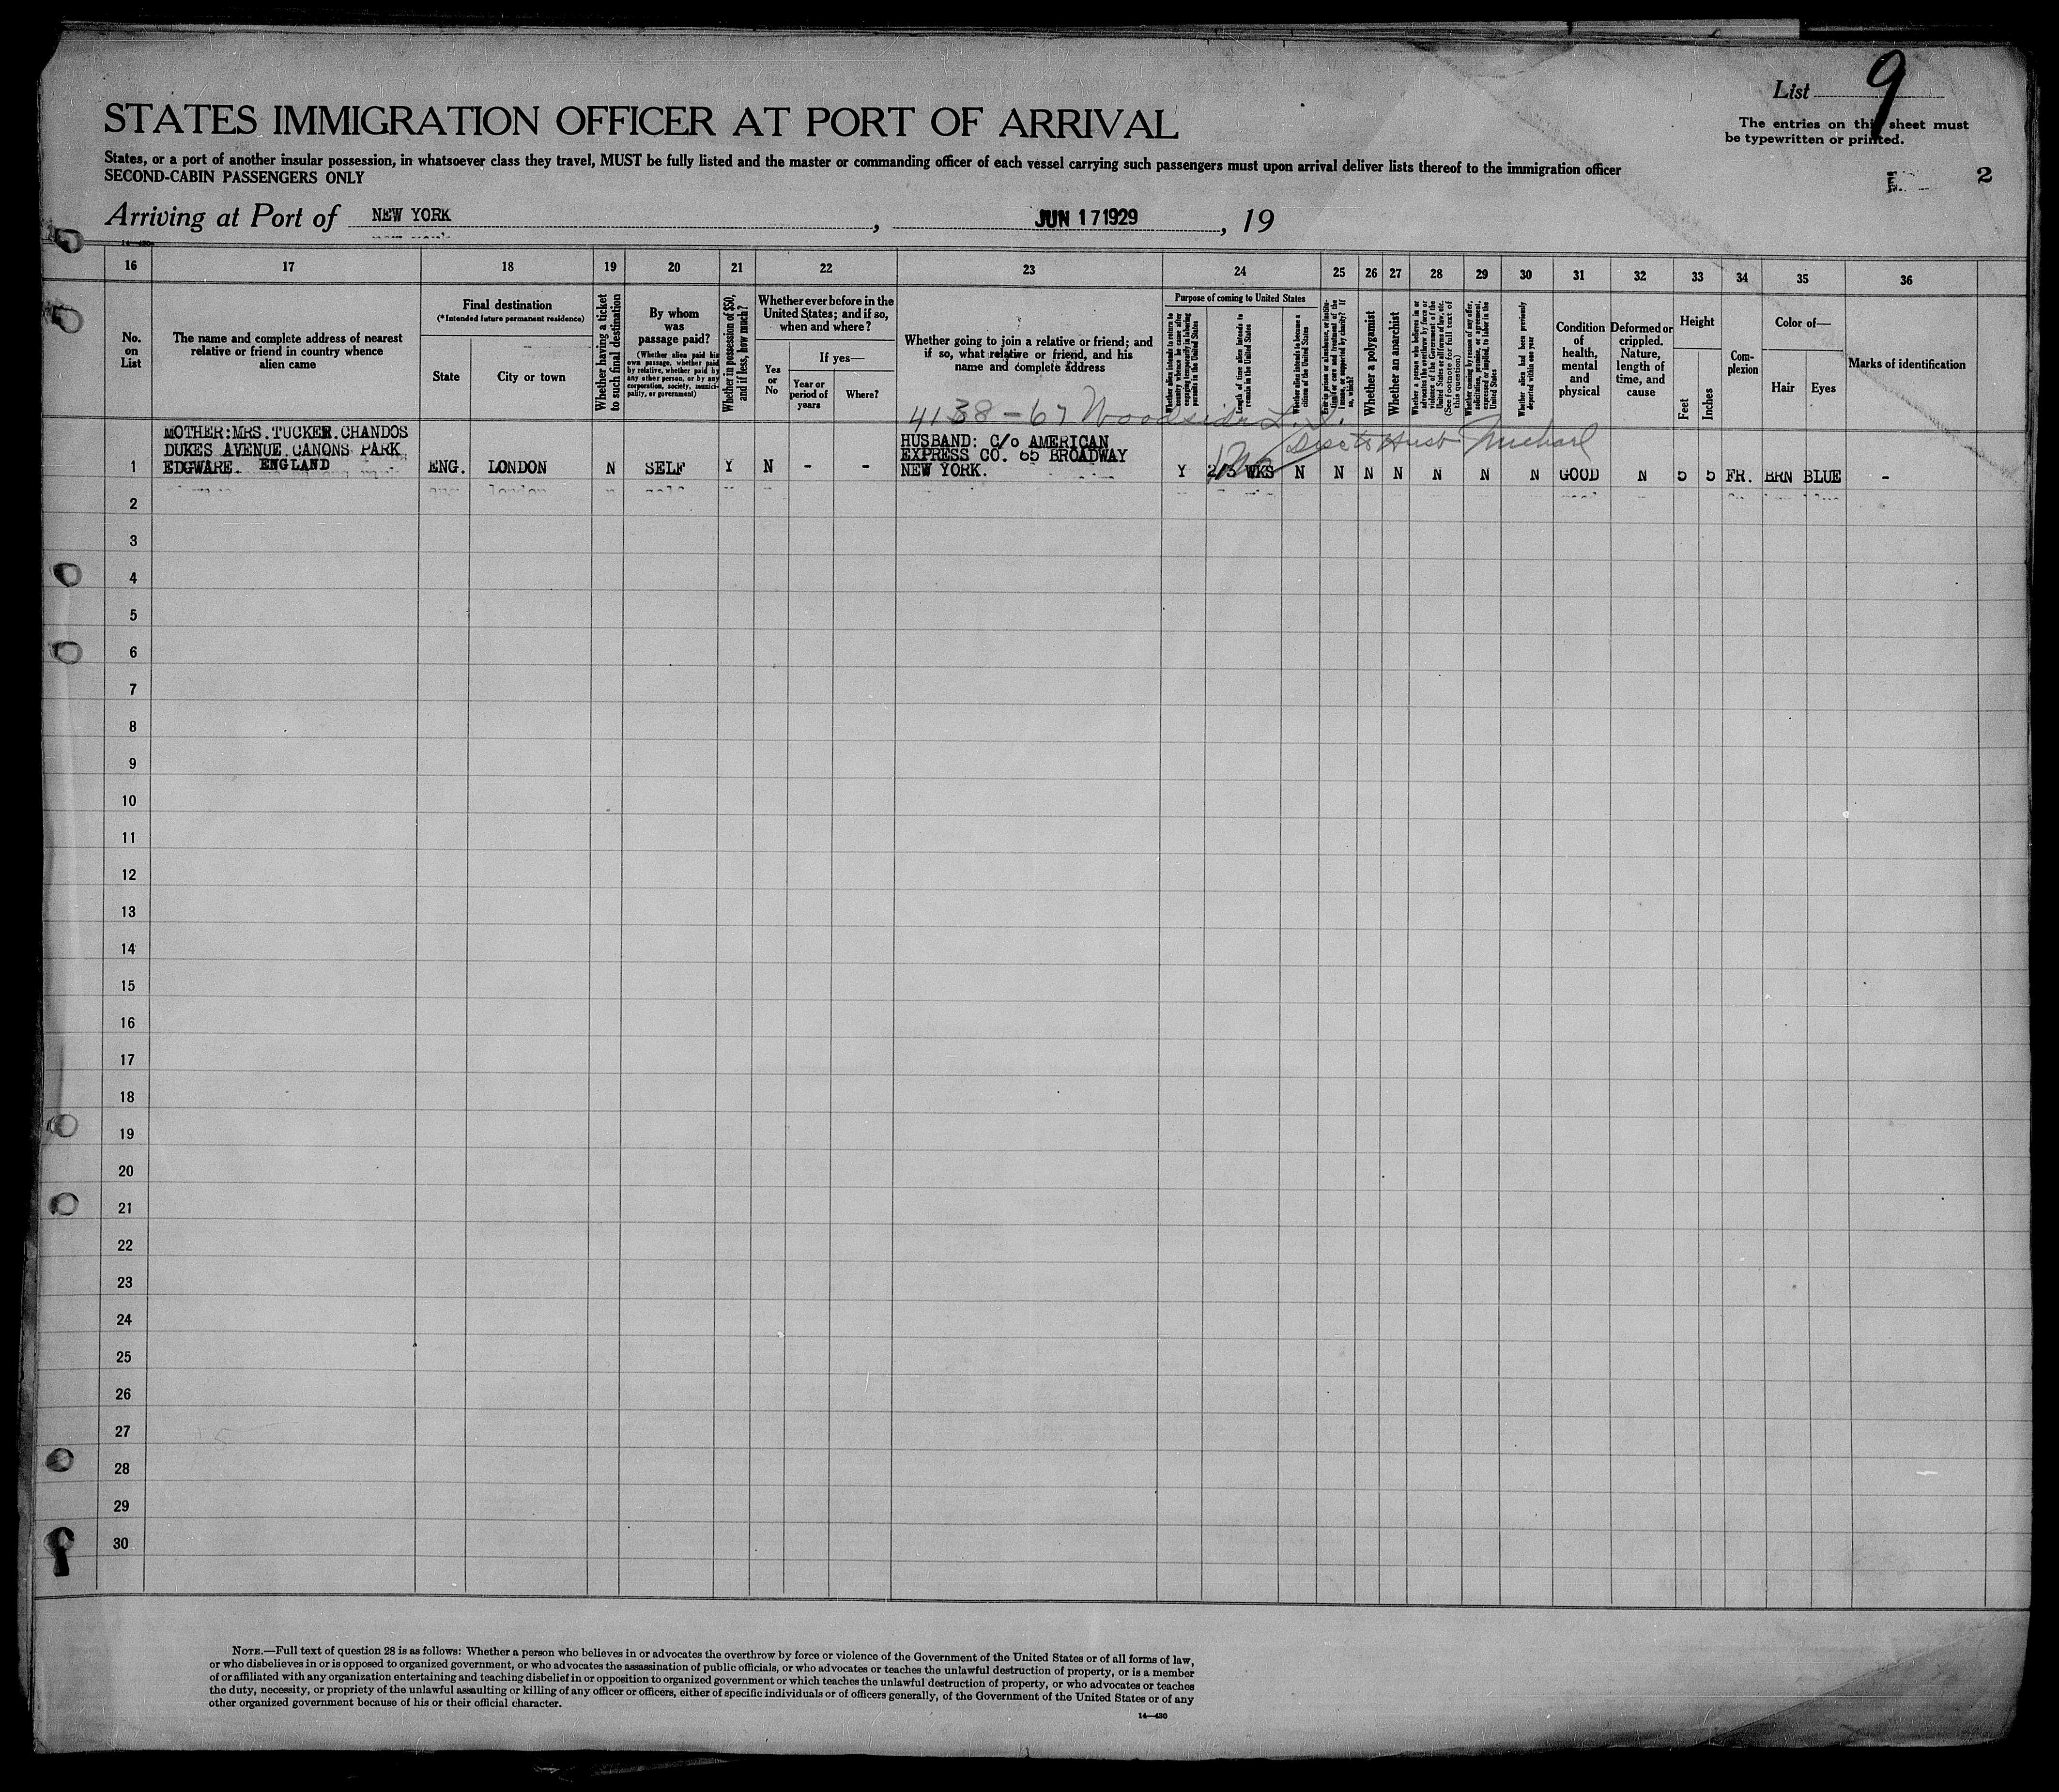 List 9
STATES IMMIGRATION OFFICER AT PORT OF ARRIVAL
The entries on this sheet must
be typewritten or printed.
States, or a port of another insular possession, in whatsoever class they travel, MUST be fully listed and the master or commanding officer of each vessel carrying such passengers must upon arrival deliver lists thereof to the immigration officer
SECOND-CABIN PASSENGERS ONLY
2
Arriving at Port of NEW YORK, JUN 17 1929, 19
16 17 18 19 20 21 22 23 24 25 26 27 28 29 30 31 32 33 34 35 36
No.
on
List
The name and complete address of nearest
relative or friend in country whence
alien came
Final destination
(*Intended future permanent residence)
State
City or town
Whether having a ticket
to such final destination
By whom
was
passage paid?
(Whether alien paid his
own passage, whether paid
by relative, whether paid by
any other person, or by any
corporation, society, munici-
pality, or government)
Whether in possession of $50,
and if less, how much?
Whether ever before in the
United States; and if so,
when and where?
Yes
or
No
If yes—
Year or
period of
years
Where?
Whether going to join a relative or friend; and
if so, what relative or friend, and his
name and complete address
Purpose of coming to United States
Whether alien intends to return to
country whence he came after
engaging temporarily in laboring
pursuits in the United States
Length of time alien intends to
remain in the United States
Whether alien intends to become a
citizen of the United States
Ever in prison or almshouse, or institu-
tion for care and treatment of the
insane, or supported by charity? If
so, which?
Whether a polygamist
Whether an anarchist
Whether a person who believes in or
advocates the overthrow by force or
violence of the Government of the
United States or all forms of law, etc.
(See footnote for full text of
this question)
Whether coming by reason of any offer,
solicitation, promise, or agreement,
expressed or implied, to labor in the
United States
Whether alien had been previously
deported within one year
Condition
of
health,
mental
and
physical
Deformed or
crippled.
Nature,
length of
time, and
cause
Height
Feet
Inches
Com-
plexion
Color of—
Hair
Eyes
Marks of identification
4138-67 Woodside L.I.
Husb Michael
MOTHER: MRS. TUCKER. CHANDOS
DUKES AVENUE. CANONS PARK
EDGWARE. ENGLAND
HUSBAND: C/o AMERICAN
EXPRESS CO. 65 BROADWAY
NEW YORK.
1 ENG. LONDON N SELF Y N - - Y 2/3 WKS N N N N N N N GOOD N 5 5 FR. BRN BLUE -
2
3
4
5
6
7
8
9
10
11
12
13
14
15
16
17
18
19
20
21
22
23
24
25
26
27
28
29
30
NOTE.—Full text of question 28 is as follows: Whether a person who believes in or advocates the overthrow by force or violence of the Government of the United States or of all forms of law,
or who disbelieves in or is opposed to organized government, or who advocates the assassination of public officials, or who advocates or teaches the unlawful destruction of property, or is a member
of or affiliated with any organization entertaining and teaching disbelief in or opposition to organized government or which teaches the unlawful destruction of property, or who advocates or teaches
the duty, necessity, or propriety of the unlawful assaulting or killing of any officer or officers, either of specific individuals or of officers generally, of the Government of the United States or of any
other organized government because of his or their official character.
14—430